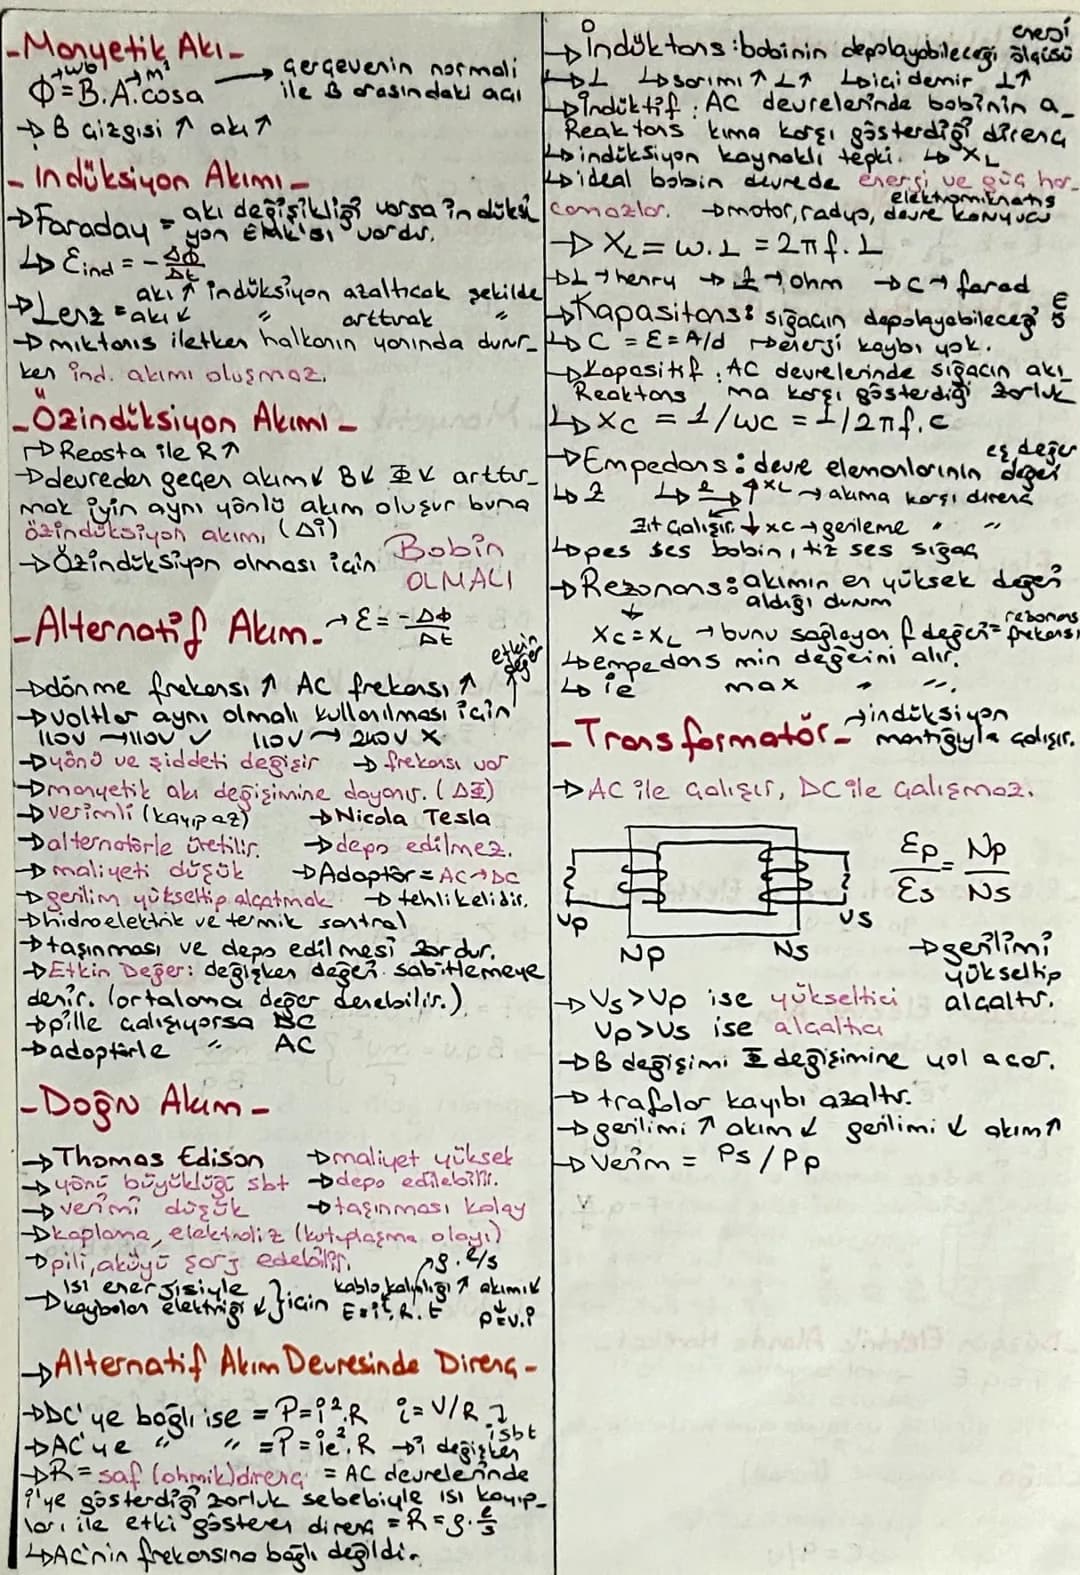 -Manyetik Akı-
→wb →m²
Φ=B.A.cosa → çerçevenin normali
ile B arasındaki açı
→B Çizgisi ↑ akı ↑
- İndüksiyon Akımı -
→Faraday = akı değişikliği varsa indüksi
yon EMK'sı vardır.
↳ Ɛind = - ΔΦ/Δt
→Lenz = akı ↑ indüksiyon azaltıcak şekilde
akı ↓ " arttırak "
→mıktanıs iletken halkanın yanında durur_
ken ind. akımı oluşmaz.
-Özindüksiyon Akımı -
→Reosta ile R↑
→devreden geçen akım↓ B↓ Φ↓ arttır_
mak için aynı yönlü akım oluşur buna
özindüksiyon akımı (Δi)
→Özindüksiyon olması için Bobin
OLMALI
-Alternatif Akım- → Ɛ = -ΔΦ/Δt
etkin
değer
→dönme frekansı ↑ AC frekansı ↑
→voltlar aynı olmalı kullanılması için
110V →110V ✓ 110V → 240V X
→yönü ve şiddeti değişir → frekansı var
→manyetik akı değişimine dayanır. (ΔΦ)
→verimli (kayıp az) →Nicola Tesla
→alternatörle üretilir. →depo edilmez.
→maliyeti düşük →Adaptör = AC→DC
→gerilim yükseltip alçatmak → tehlikelidir.
→hidroelektrik ve termik santral
→taşınması ve depo edilmesi zordur.
→Etkin Değer: değişken değeri sabitlemeye
denir. (ortalama değer denebilir.)
→pille çalışıyorsa DC
→adaptörle " AC
-Doğru Akım-
→Thomas Edison →maliyet yüksek
→yönü büyüklüğü sbt →depo edilebilir.
→verimi düşük →taşınması kolay
→kaplama, elektroliz (kutuplaşma olayı)
→pili, aküyü şarj edebilir.
→ısı enerjisiyle
kaybolan elektriği ↓ } için kablo kalınlığı ↑ akımı↓
E=i².R.t P=V.i
→ρ.ℓ/s
→Alternatif Akım Devresinde Direnç-
→DC'ye bağlı ise = P=i².R i=V/R
isbt
→AC'ye " " =P=ie².R →i değişken
→R= saf (ohmik)direnç = AC devrelerinde
i'ye gösterdiği zorluk sebebiyle ısı kayıp_
ları ile etki gösteren direnç = R=ρ.ℓ/s
↳AC'nin frekansına bağlı değildir.
→İndüktans : bobinin depolayabileceği enerji ölçüsü
→L ↳sarımı ↑ L↑ ↳içi demir L↑
→İndüktif : AC devrelerinde bobinin a_
Reaktans kıma karşı gösterdiği direnç
↳indüksiyon kaynaklı tepki. ↳ XL
↳ideal bobin devrede enerji ve güç har_
camazlar. →motor, radyo, elektromıknatıs devre koruyucu
→ XL = w.L = 2πf.L
→L→henry →Z→ohm →C→farad
→Kapasitans: sığacın depolayabileceği E
↳C = Ɛ=A/d →enerji kaybı yok.
→Kapasitif : AC devrelerinde sığacın akı_
Reaktans ma karşı gösterdiği zorluk
↳XC = 1/wC = 1/2πf.C
→Empedans : devre elemanlarının eş değer değeri
↳Z ↑XL → akıma karşı direnç
Zıt çalışır. ↓XC → gerileme " "
↳pes ses bobin, tiz ses sığaç
→Rezonans: akımın en yüksek değeri
aldığı durum
XC=XL →bunu sağlayan f değeri= rezonans frekansı
↳empedans min değerini alır.
↳ie max " ".
-Transformatör- →indüksiyon
mantığıyla çalışır.
→AC ile çalışır, DC ile çalışmaz.
Ɛp/Ɛs = Np/Ns
Vp Vs
Np Ns
→gerilimi
yükseltip
alçaltır.
→Vs>Vp ise yükseltici
Vp>Vs ise alçaltıcı
→B değişimi Φ değişimine yol açar.
→trafolar kayıbı azaltır.
→gerilimi ↑ akım ↓ gerilimi ↓ akım↑
→Verim = Ps/Pp